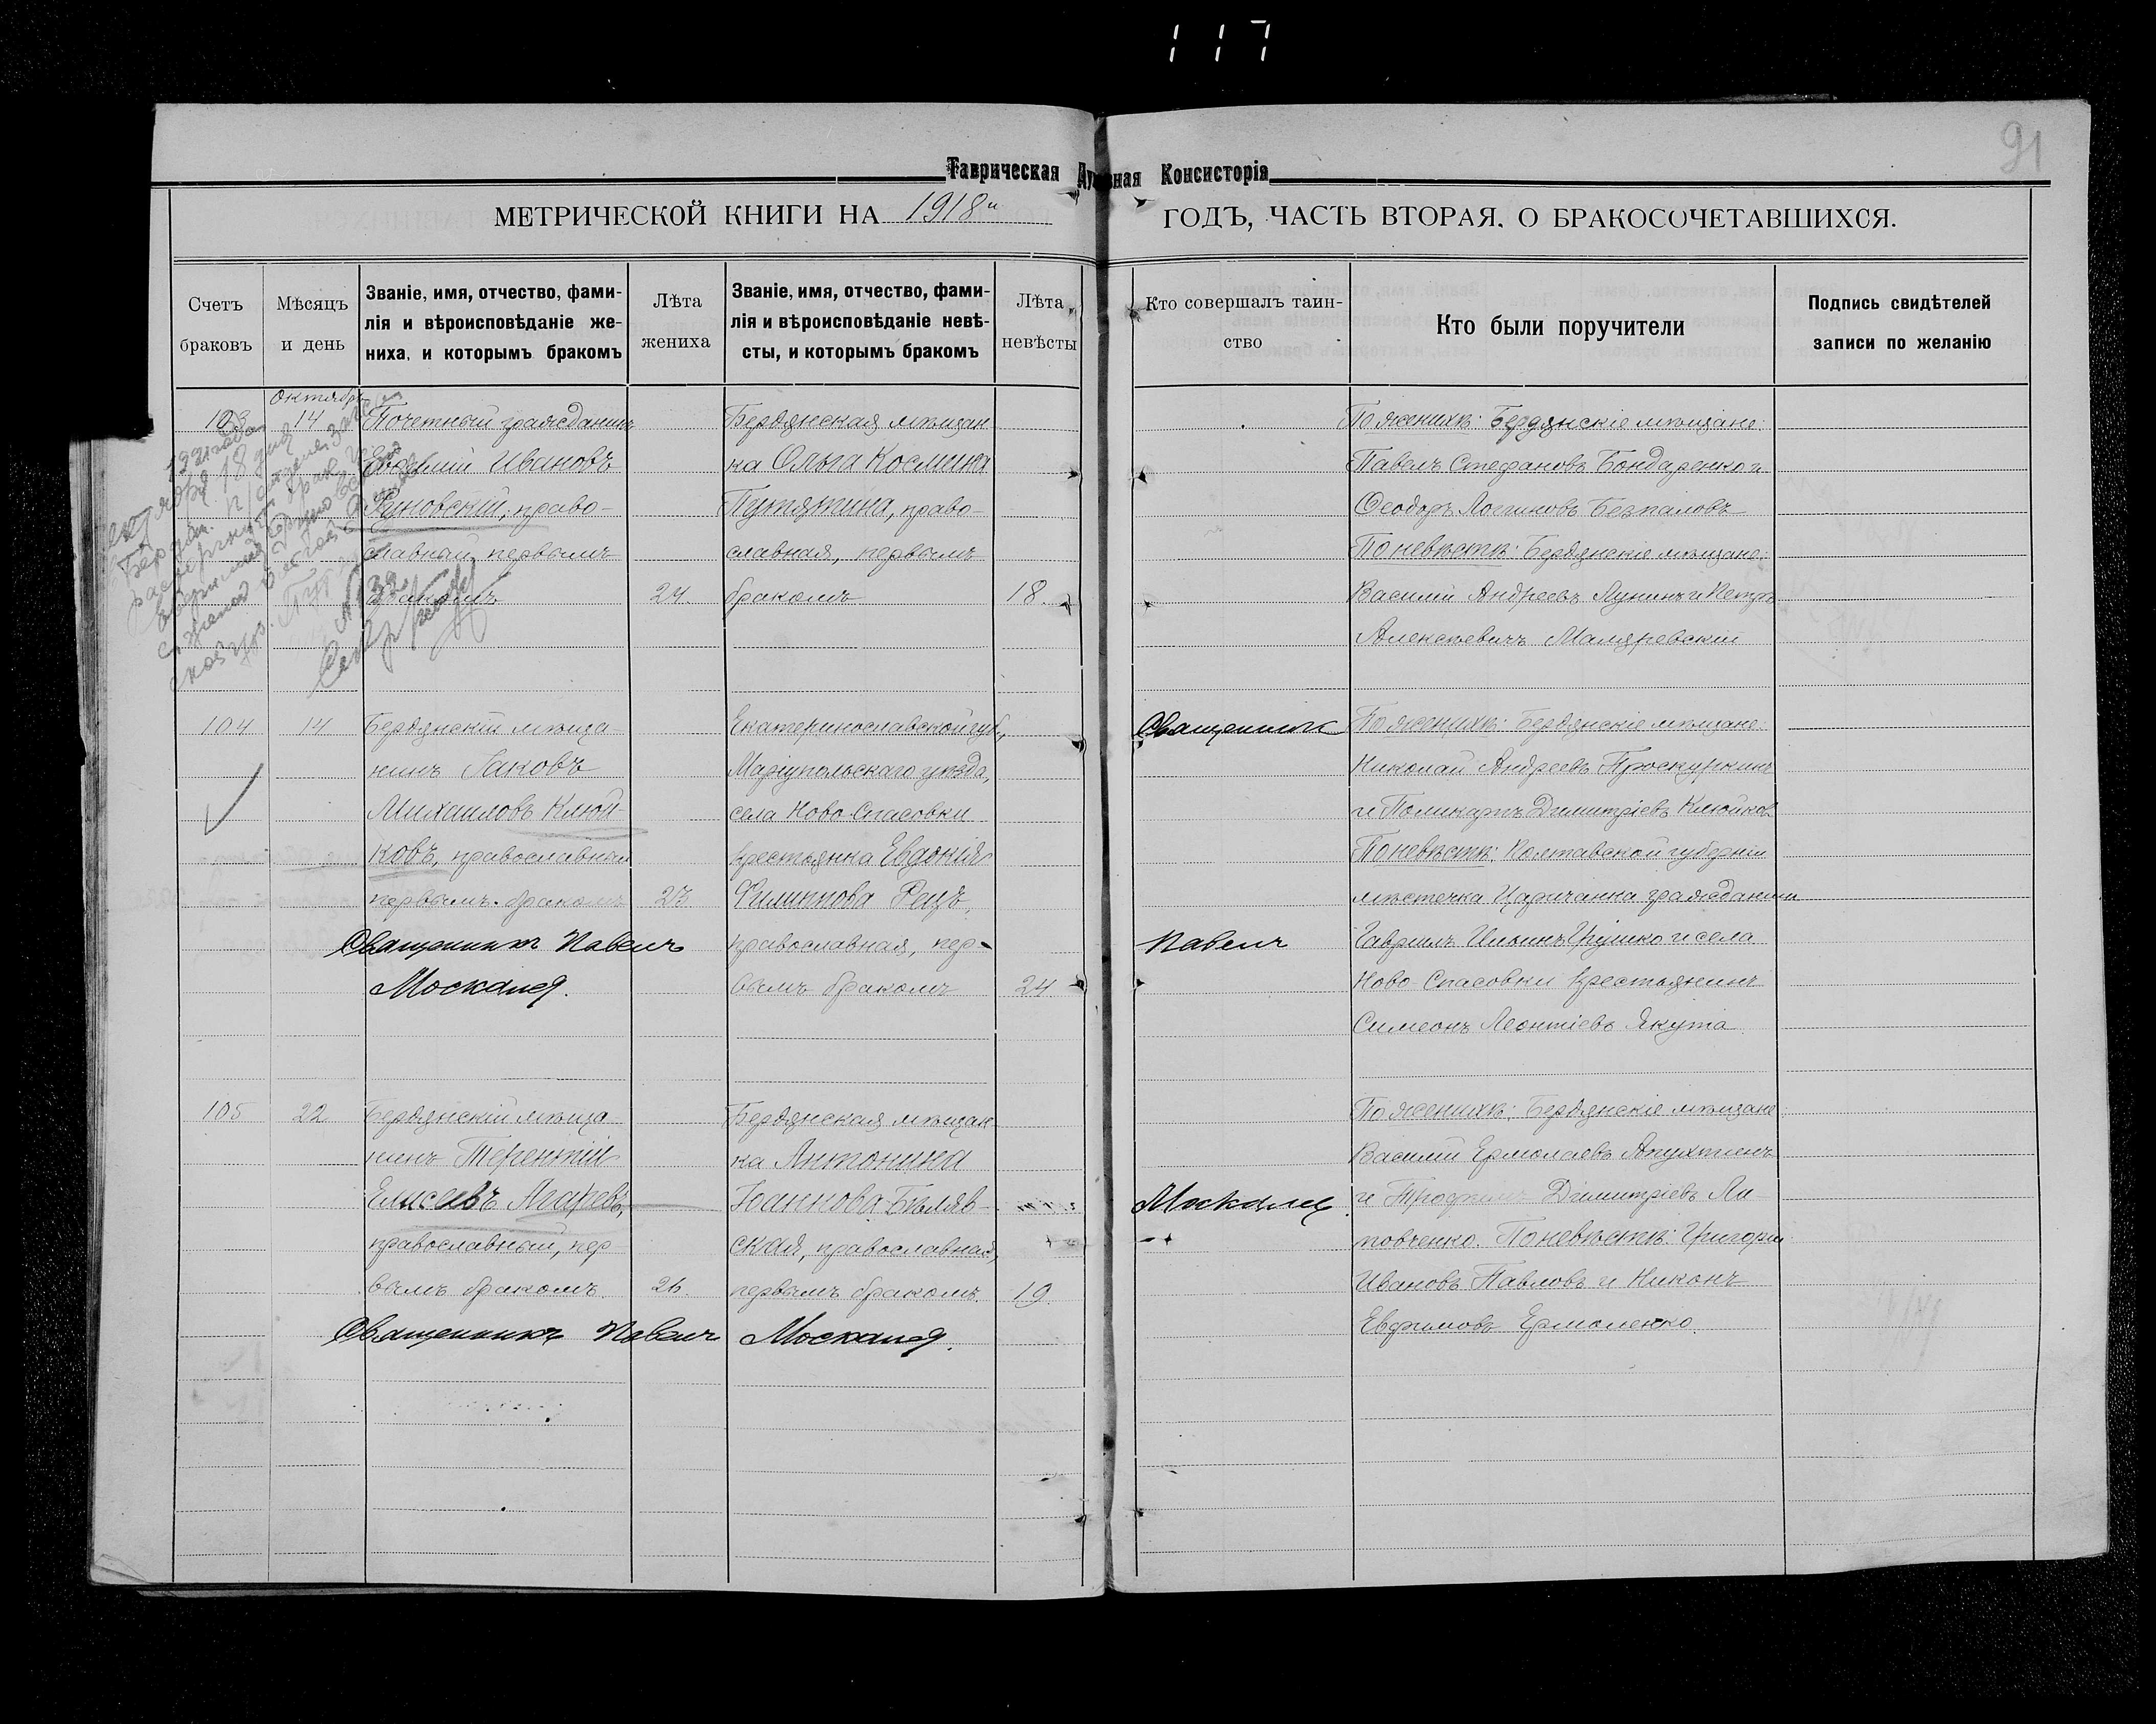 117
91
Таврическая Духовная Консисторія
МЕТРИЧЕСКОЙ КНИГИ НА 1918й ГОДЪ, ЧАСТЬ ВТОРАЯ, О БРАКОСОЧЕТАВШИХСЯ.
Счетъ браковъ
Мѣсяцъ и день
Званіе, имя, отчество, фами-
лія и вѣроисповѣданіе же-
ниха, и которымъ бракомъ
Лѣта жениха
Званіе, имя, отчество, фами-
лія и вѣроисповѣданіе невѣ-
сты, и которымъ бракомъ
Лѣта невѣсты
Кто совершалъ таин-
ство
Кто были поручители
Подпись свидѣтелей
записи по желанію
Октябрь
103
14
Почетный гражданинъ
Ивановъ
православный первымъ
бракомъ
24.
Бердянская мѣщан
ка Ольга Космина
Путятина, право-
славная, первымъ
бракомъ
18.
По женихѣ: Бердянскіе мѣщане:
Павелъ Стефановъ Бондаренко и
Ѳеодоръ Логиновъ Безпаловъ
По невѣстѣ: Бердянскіе мѣщане:
Василій Андреевъ Лунинъ и Петръ
Алексѣевичъ
104
14
Бердянскій мѣща-
нинъ Іаковъ
Михаиловъ Клюй-
ковъ, православный
первымъ бракомъ
23
Священникъ Павелъ
Москалец.
Екатеринославской губ.,
Маріупольскаго уѣзда,
села Ново-Спасовки
крестьянка Евдокія
Филиппова Рецъ,
православная, пер-
вымъ бракомъ
24
Священникъ
Павелъ
Москалец
По женихѣ: Бердянскіе мѣщане:
Николай Андреевъ Проскуркинъ
и Поликарпъ Димитріевъ Клюйковъ
По невѣстѣ: Полтавской губерніи
мѣстечка Царичанка гражданинъ
Гавріилъ Ильинъ Грушко и села
Ново-Спасовки крестьянинъ
Симеонъ Леонтіевъ Якута
105
22
Бердянскій мѣща-
нинъ Терентій
Елисеевъ Агафевъ,
православный, пер
вымъ бракомъ.
26.
Бердянская мѣщан
ка Антонина
Іоаннова Бѣляв-
ская, православная,
первымъ бракомъ.
19.
Священникъ Павелъ Москалец.
По женихѣ: Бердянскіе мѣщане:
Василій Ермолаевъ Апухтинъ
и Трофимъ Димитріевъ Ли-
товченко. По невѣстѣ: Григорій
Ивановъ Павловъ и Никонъ
Евфимовъ Ермоленко.